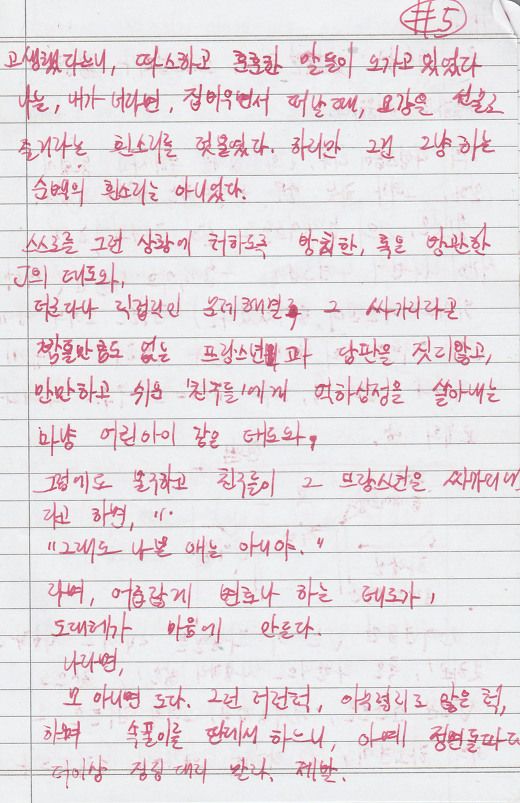 #5
고생했다느니, 따스하고 훈훈한 말들이 오가고 있었다
나는, 내가 너라면, 집어우면서 떠날 때, 요강을 선물로
즐기라는 흰소리를 덧붙였다. 하지만 그건 그냥 하는
순백의 흰소리는 아니었다.
스스로를 그런 상황에 처하도록 방치한, 혹은 방관한
J의 태도와,
더군다나 직접적인 문제해결을 그 싸가지라곤
쌀톨만큼도 없는 프랑스년과 담판을 짓지않고,
만만하고 쉬운 '친구들'에게 억하심정을 쏟아내는
마냥 어린아이 같은 태도와,
그럼에도 불구하고 친구들이 그 프랑스년을 싸가지네
라고 하면, "
"그래도 나쁜 애는 아니야."
라며, 어줍잖게 변호나 하는 태도가,
도대체가 마음에 안든다.
나라면,
모 아니면 도다. 그런 저런척, 이죽렬리로 않은 척,
하며 속풀이를 딴데서 하느니, 아예 정면돌파다
더이상 징징대지 말라. 제발.